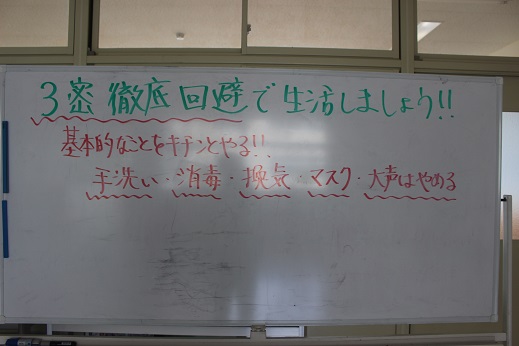 3密徹底回避で生活しましょう!!
基本的なことをキチンとやる!!
手洗い・消毒・換気・マスク・大声はやめる